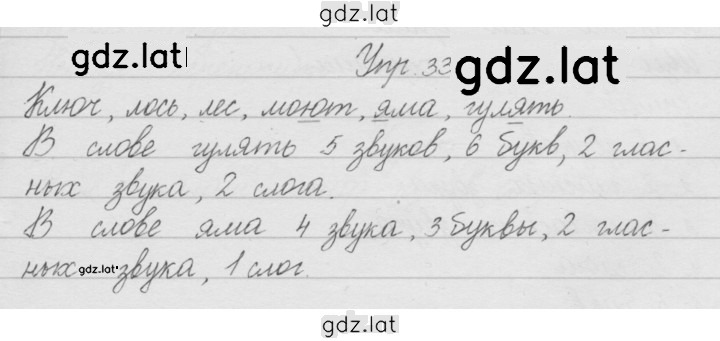 gdz.lat
gdz.lat Упр. 33 gdz.lat
Ключ, лось, лес, моют, яма, гулять.
В слове гулять 5 звуков, 6 букв, 2 глас-
ных звука, 2 слога.
В слове яма 4 звука, 3 буквы, 2 глас-
ных gdz.lat звука, 1 слог.
gdz.lat